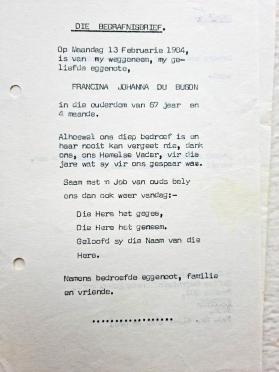 DIE BEDRAFNISBRIEF.
Op Maandag 13 Februarie 1904,
is van my weggeneem, my ge-
liefde eggenote,
FRANCINA JOHANNA DU BUSON
in die ouderdom van 67 jaar en
4 maande.
Alhoewel ons diep bedroef is en
haar nooit kan vergeet nie, dank
ons, ons Hemelse Vader, vir die
jare wat sy vir ons gespaar was.
Saam met 'n Job van ouds bely
ons dan ook weer vandag:-
Die Here het gegee,
Die Here het geneem.
Geloofd sy die Naam van die
Here.
Namens bedroefde eggenoot, familie
en vriende.
..................